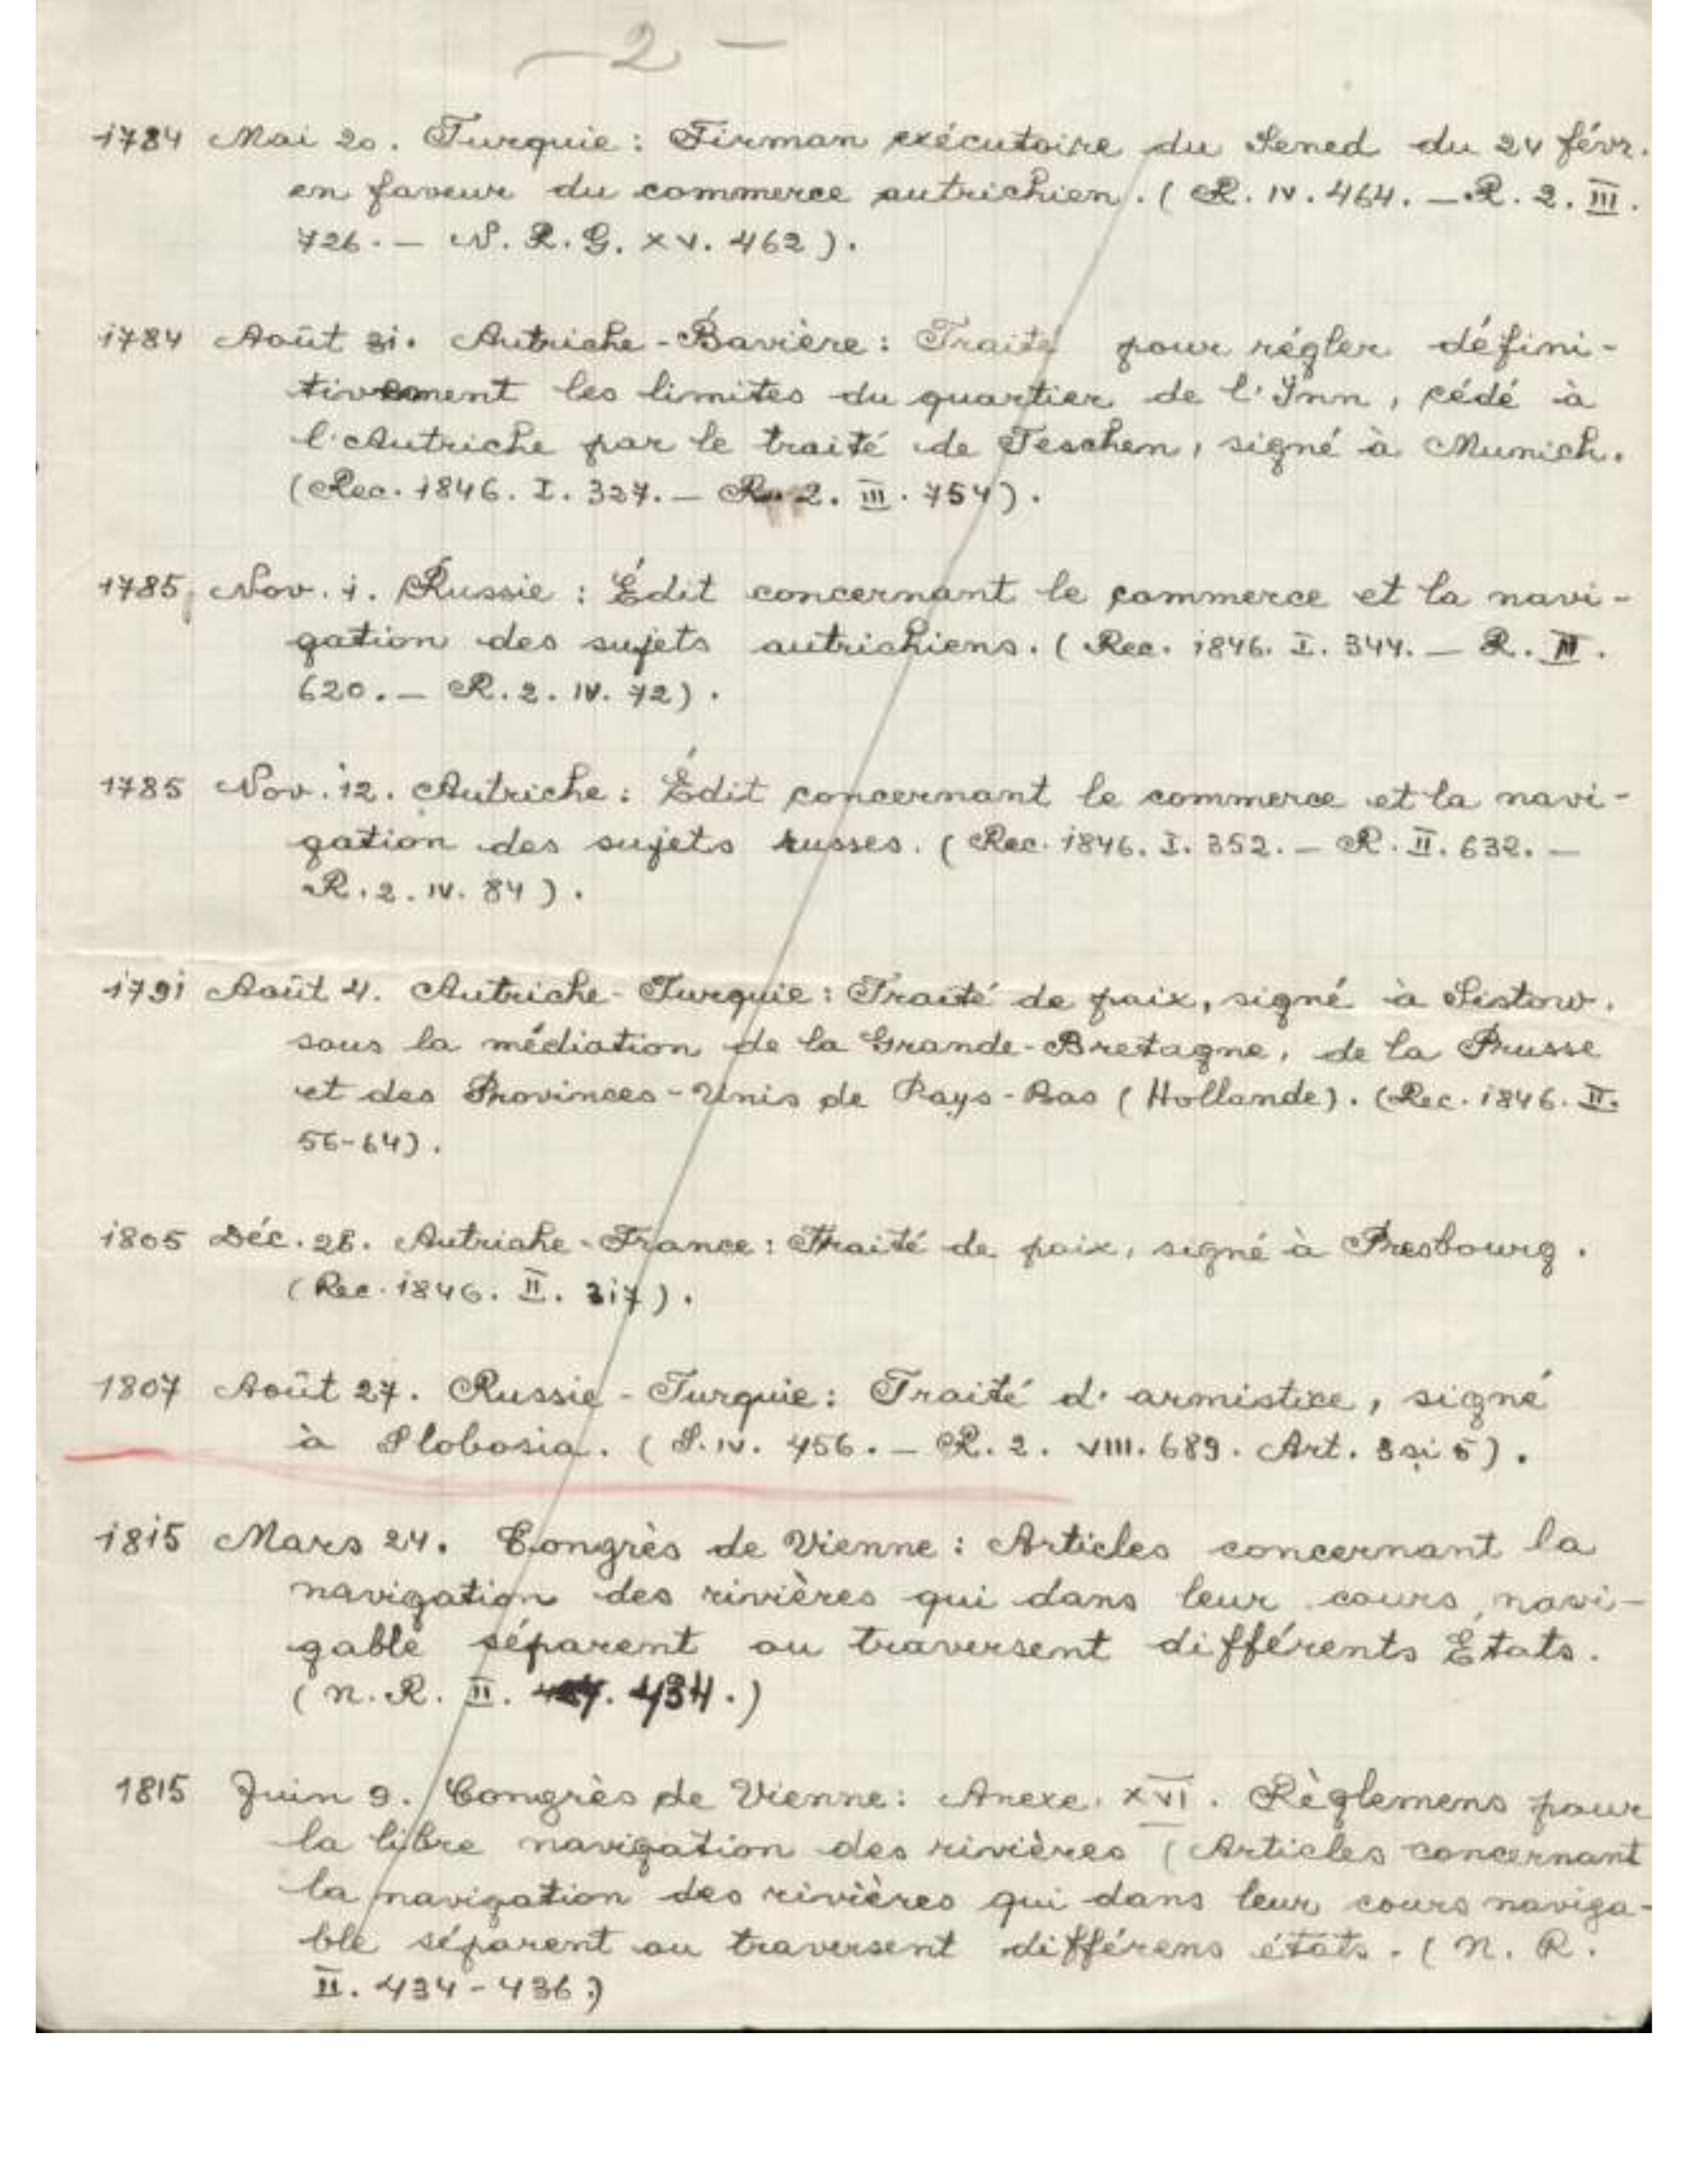 — 2 —
1784 Mai 20. Turquie: Firman exécutoire du Sened du 24 févr.
en faveur du commerce autrichien. (R. IV. 464. — R. 2. III.
726. — N. R. G. XV. 462).
1784 Août 31. Autriche-Bavière: Traité pour régler défini-
tivement les limites du quartier de l'Inn, cédé à
l'Autriche par le traité de Teschen, signé à Munich.
(Rec. 1846. I. 327. — R. 2. III. 754).
1785 Nov. 1. Russie: Édit concernant le commerce et la navi-
gation des sujets autrichiens. (Rec. 1846. I. 344. — R.
620. — R. 2. IV. 72).
1785 Nov. 12. Autriche: Édit concernant le commerce et la navi-
gation des sujets russes. (Rec. 1846. I. 352. — R. II. 632. —
R. 2. IV. 84).
1791 Août 4. Autriche-Turquie: Traité de paix, signé à Sistow.
sous la médiation de la Grande-Bretagne, de la Prusse
et des Provinces-Unis de Pays-Bas (Hollande). (Rec. 1846. II.
56-64).
1805 Déc. 26. Autriche-France: Traité de paix, signé à Presbourg.
(Rec. 1846. II. 317).
1807 Août 27. Russie-Turquie: Traité d'armistice, signé
à Slobosia. (S. IV. 456. — R. 2. VIII. 689. Art. 3 și 5).
1815 Mars 24. Congrès de Vienne: Articles concernant la
navigation des rivières qui dans leur cours navi-
gable séparent ou traversent différents États.
(N. R. II. 434.)
1815 Juin 9. Congrès de Vienne: Anexe. XVI. Règlemens pour
la libre navigation des rivières (Articles concernant
la navigation des rivières qui dans leur cours naviga-
ble séparent ou traversent différens états. (N. R.
II. 434-436.)